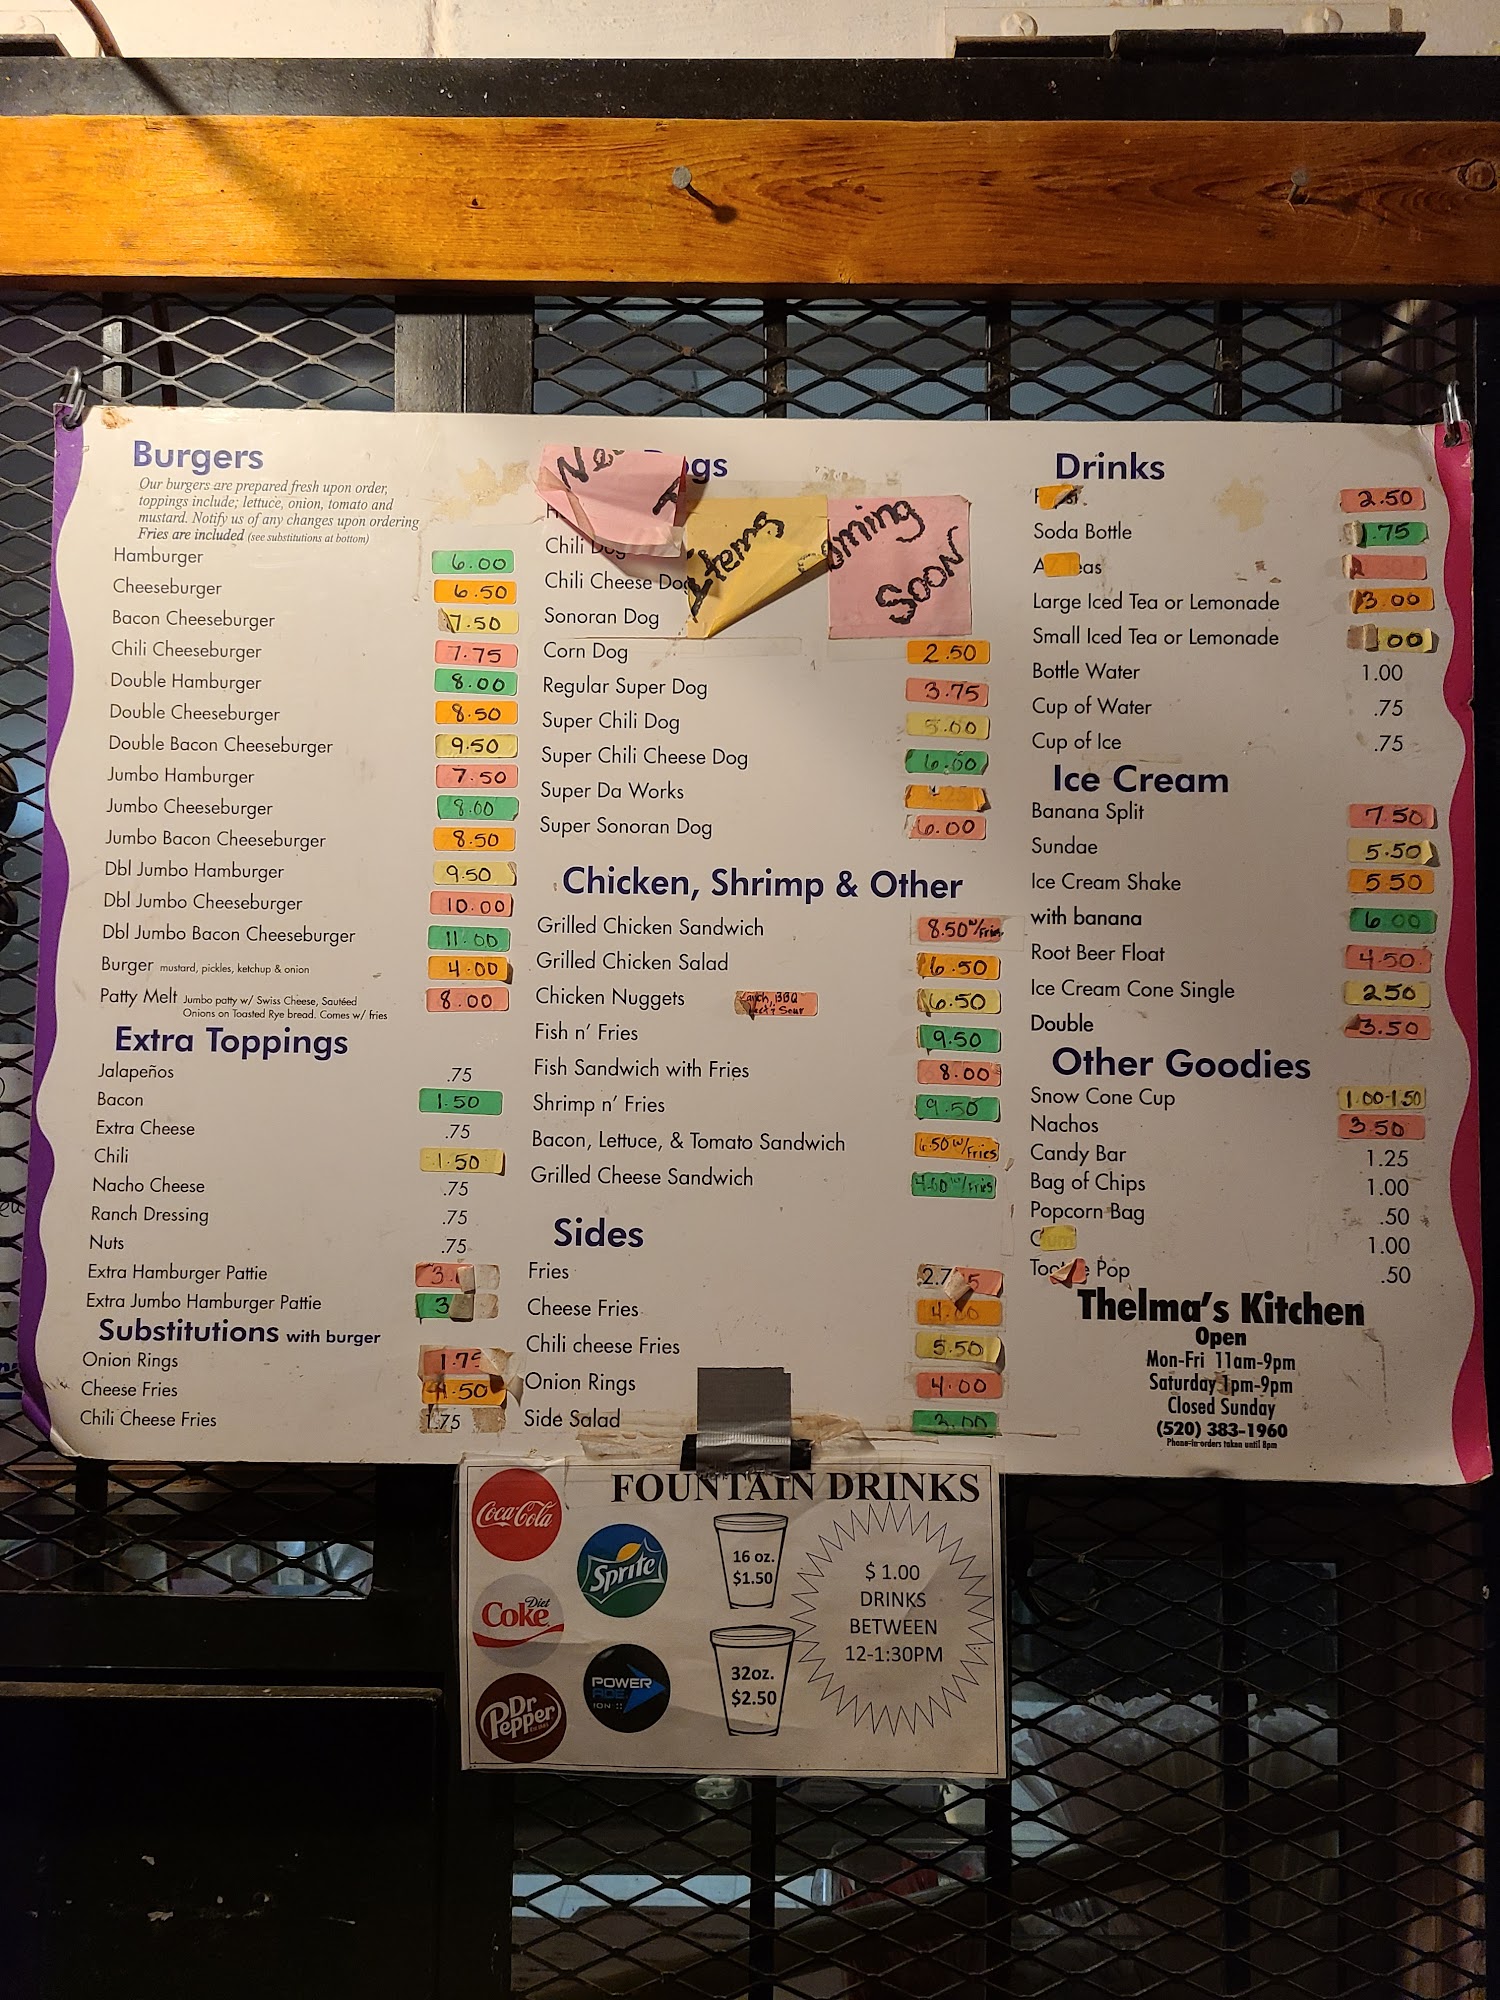 Burgers
Our burgers are prepared fresh upon order,
toppings include; lettuce, onion, tomato and
mustard. Notify us of any changes upon ordering
Fries are included (see substitutions at bottom)
Hamburger 6.00
Cheeseburger 6.50
Bacon Cheeseburger 7.50
Chili Cheeseburger 7.75
Double Hamburger 8.00
Double Cheeseburger 8.50
Double Bacon Cheeseburger 9.50
Jumbo Hamburger 7.50
Jumbo Cheeseburger 8.00
Jumbo Bacon Cheeseburger 8.50
Dbl Jumbo Hamburger 9.50
Dbl Jumbo Cheeseburger 10.00
Dbl Jumbo Bacon Cheeseburger 11.00
Burger mustard, pickles, ketchup & onion 4.00
Patty Melt Jumbo patty w/ Swiss Cheese, Sautéed 8.00
Onions on Toasted Rye bread. Comes w/ fries
Extra Toppings
Jalapeños .75
Bacon 1.50
Extra Cheese .75
Chili 1.50
Nacho Cheese .75
Ranch Dressing .75
Nuts .75
Extra Hamburger Pattie 3.
Extra Jumbo Hamburger Pattie 3
Substitutions with burger
Onion Rings 1.75
Cheese Fries .50
Chili Cheese Fries 1.75
Dogs
Items
Coming
Soon
Chili Dog
Chili Cheese Dog
Sonoran Dog
Corn Dog 2.50
Regular Super Dog 3.75
Super Chili Dog 5.00
Super Chili Cheese Dog 6.00
Super Da Works
Super Sonoran Dog 6.00
Chicken, Shrimp & Other
Grilled Chicken Sandwich 8.50 w/Fries
Grilled Chicken Salad 6.50
Chicken Nuggets BBQ Sour 6.50
Fish n' Fries 9.50
Fish Sandwich with Fries 8.00
Shrimp n' Fries 9.50
Bacon, Lettuce, & Tomato Sandwich 6.50 w/Fries
Grilled Cheese Sandwich 4.00 w/Fries
Sides
Fries 2.75
Cheese Fries 4.00
Chili cheese Fries 5.50
Onion Rings 4.00
Side Salad 3.00
Drinks
2.50
Soda Bottle .75
Large Iced Tea or Lemonade 3.00
Small Iced Tea or Lemonade .00
Bottle Water 1.00
Cup of Water .75
Cup of Ice .75
Ice Cream
Banana Split 7.50
Sundae 5.50
Ice Cream Shake 5.50
with banana 6.00
Root Beer Float 4.50
Ice Cream Cone Single 2.50
Double 3.50
Other Goodies
Snow Cone Cup 1.00-1.50
Nachos 3.50
Candy Bar 1.25
Bag of Chips 1.00
Popcorn Bag .50
Gum 1.00
Tootsie Pop .50
Thelma's Kitchen
Open
Mon-Fri 11am-9pm
Saturday 1pm-9pm
Closed Sunday
(520) 383-1960
Phone-in orders taken until 8pm
FOUNTAIN DRINKS
Coca-Cola
Sprite
Diet
Coke
POWER
ADE
ION
Dr
Pepper
16 oz.
$1.50
32oz.
$2.50
$ 1.00
DRINKS
BETWEEN
12-1:30PM